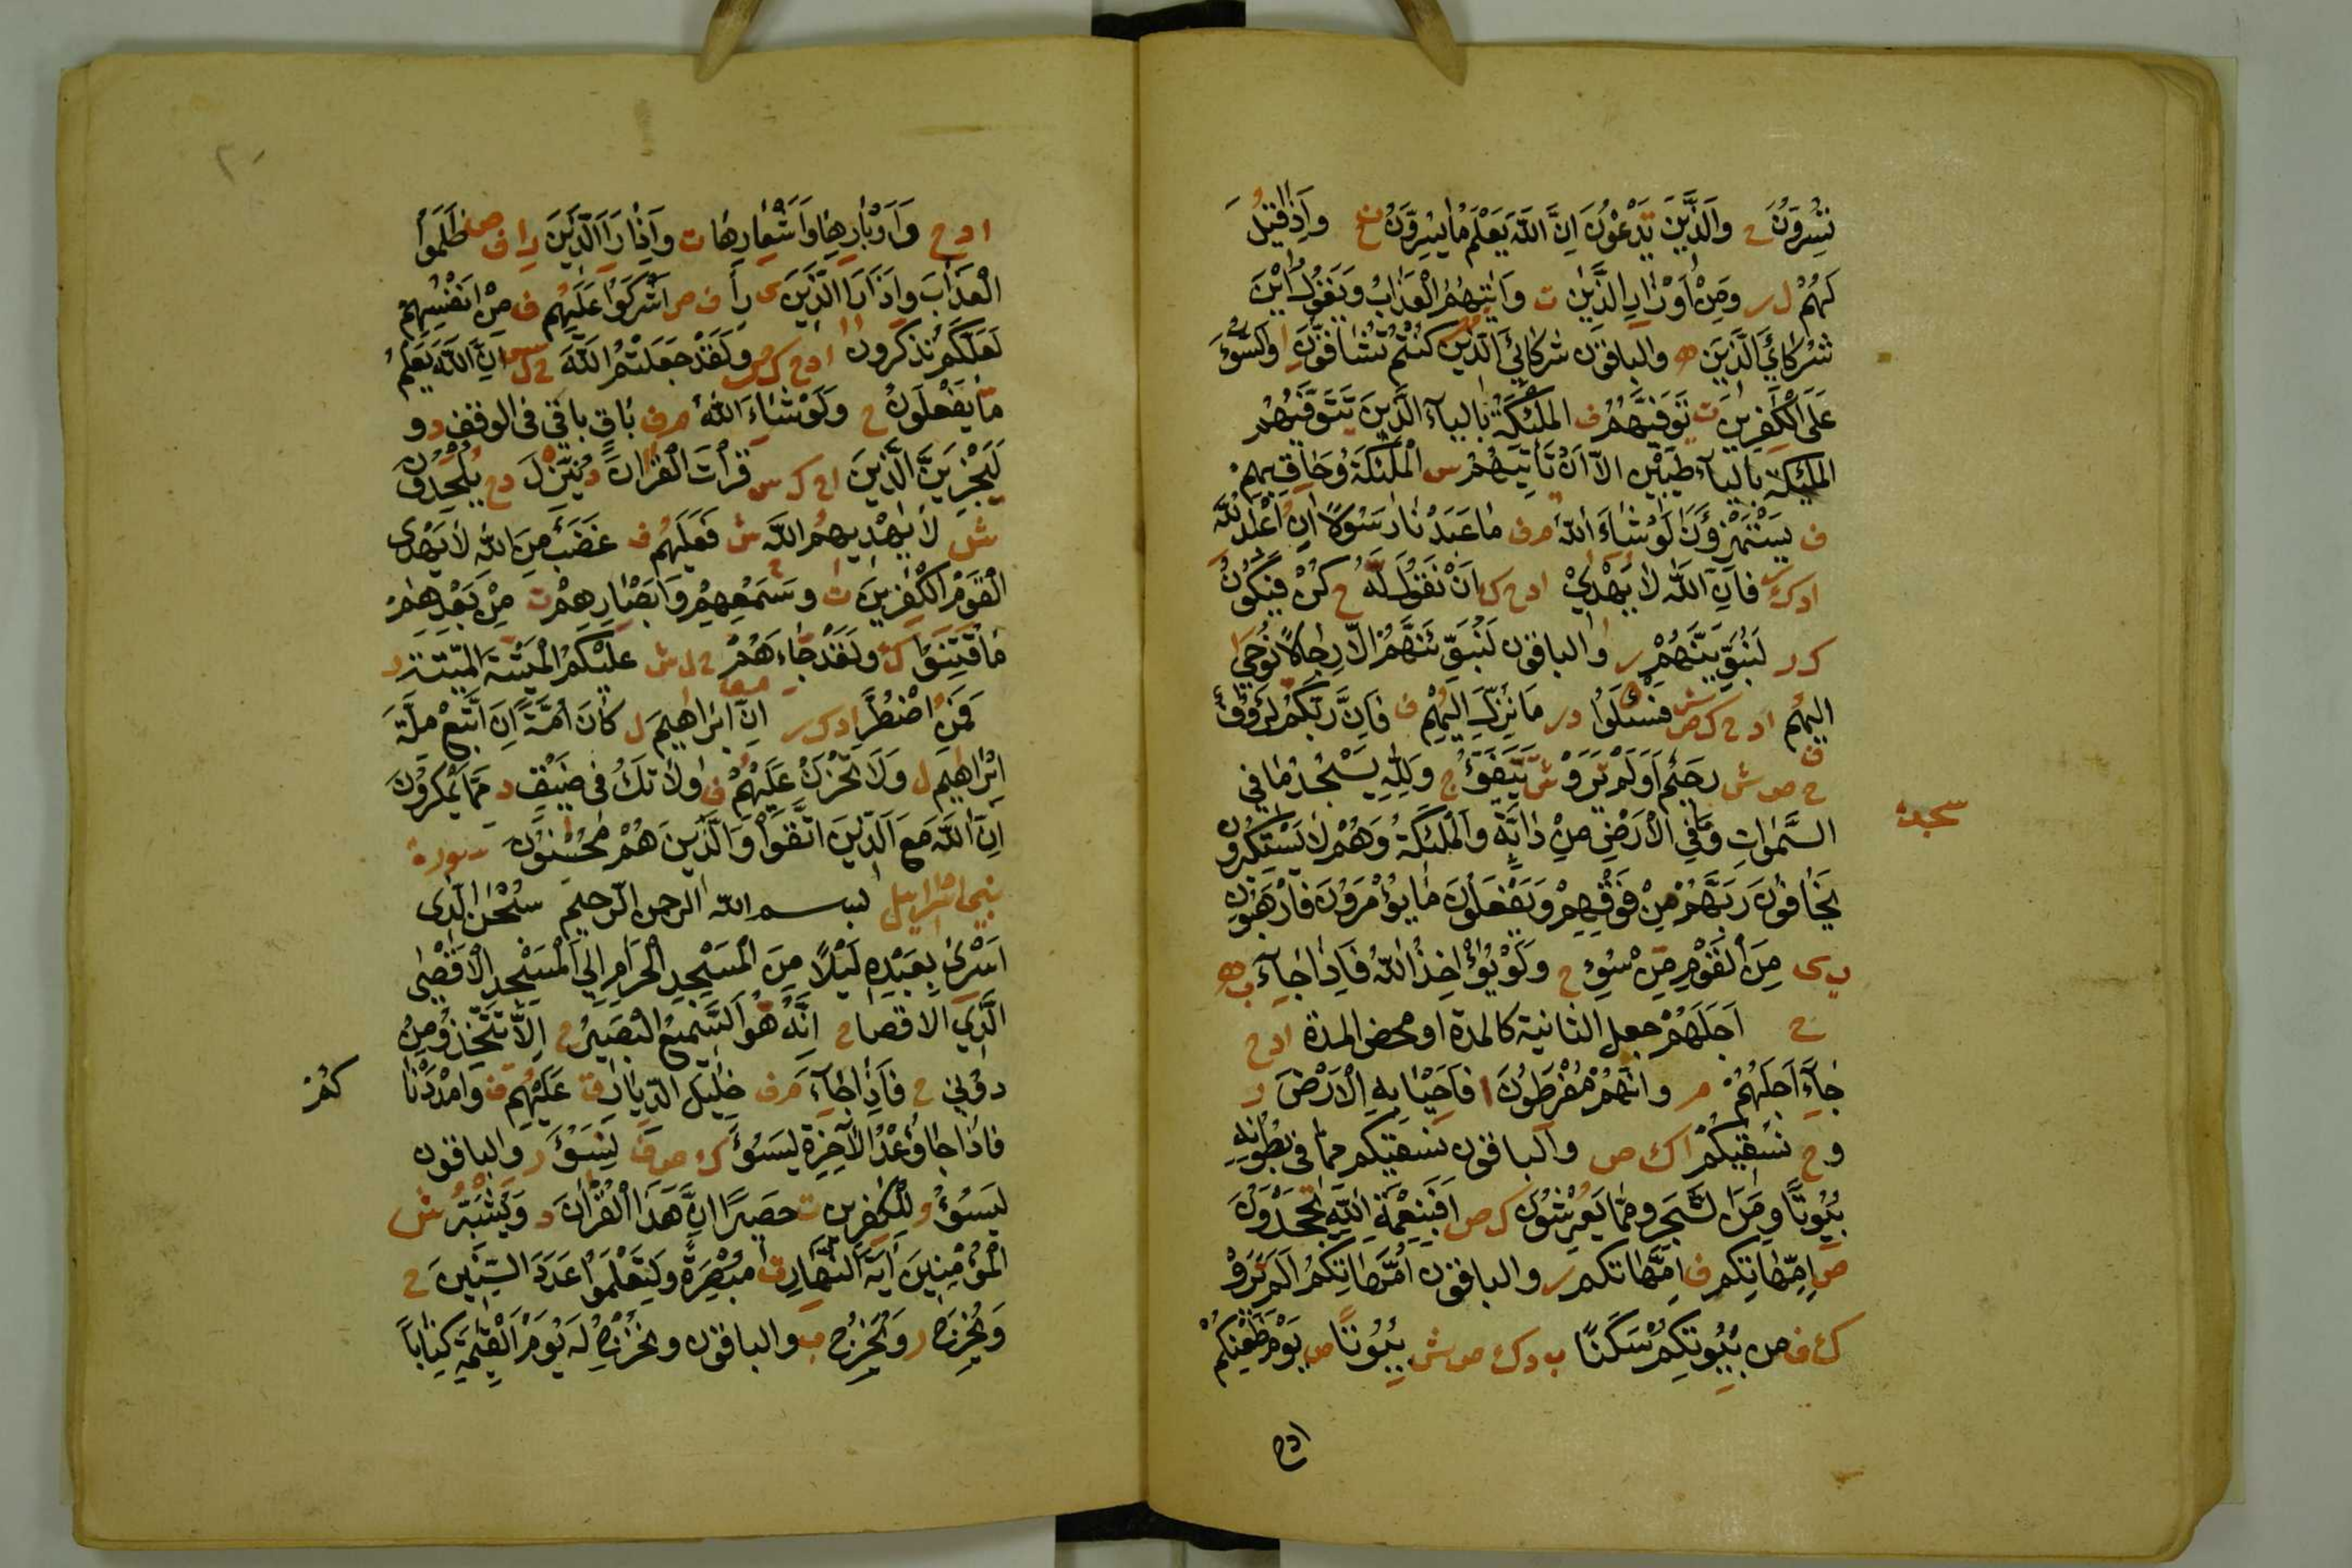 تُسِرُّونَ ح وَالَّذِينَ تَدْعُونَ اِنَّ اللّٰهَ يَعْلَمُ مَا يُسِرُّونَ خ وَاِذَا قِيلَ
لَهُمْ ل ر وَمِنْ اَوْزَارِ الَّذِينَ ت وَاَتٰيهُمُ الْعَذَابُ وَيَقُولُ اَيْنَ
شُرَكَايَ الَّذِينَ ه والباقون شُرَكَائِيَ الَّذِينَ كُنْتُمْ تُشَاقُّونِ ا وَالسُّوءَ
عَلَى الْكٰفِرِينَ ت تَوَفّٰيهُمُ ف الملٰئكة بالياء الَّذِينَ تَتَوَفّٰيهُمُ
الملٰئكة بالياء طَيِّبِينَ اِلَّا اَنْ تَأْتِيَهُمُ س الْمَلٰئِكَةُ وَحَاقَ بِهِمْ
ف يَسْتَهْزِؤُنَ لَوْ شَاءَ اللّٰهُ م ف مَا عَبَدْنَا رَسُولًا اَنِ اعْبُدُ اللّٰهَ
ا د ك ر فَاِنَّ اللّٰهَ لَا يَهْدِي ا د ح ك اَنْ نَقُولَ لَهُ ح كُنْ فَيَكُونُ
ك ر لَنُبَوِّيَنَّهُمْ ر والباقون لَنُبَوِّئَنَّهُمْ اِلَّا رِجَالًا نُوحِي ا
اليهُم ا د ح ك ص ش فَسْئَلُوا د ر مَا نُزِّلَ اِلَيْهِمْ ف فَاِنَّ رَبَّكُمْ لَرَؤُفٌ
ح ص ش رَحِيمٌ اَوَلَمْ تَرَوْا ش تَتَفَيَّؤُ ح وَلِلّٰهِ يَسْجُدُ مَا فِي
سجدة
السَّمٰوَاتِ وَمَا فِي الْاَرْضِ مِنْ دَابَّةٍ وَالْمَلٰئِكَةُ وَهُمْ لَا يَسْتَكْبِرُونَ
يَخَافُونَ رَبَّهُمْ مِنْ فَوْقِهِمْ وَيَفْعَلُونَ مَا يُؤْمَرُونَ فَارْهَبُونِ
ب ى مِنَ الْقَوْمِ مِنْ سُوءِ ح وَلَوْ يُؤَاخِذُ اللّٰهُ فَاِذَا جَآءَ ب ه
ح اَجَلُهُمْ جعل الثانية كالمدة او محض المدة ا د ح
جَآءَ اَجَلُهُمْ م وَاَنَّهُمْ مُفْرَطُونَ ا فَاَحْيَا بِهِ الْاَرْضَ ر
و ح نَسْقِيكُمْ ا ك ص والباقون نُسْقِيكُمْ مِمَّا فِي بُطُونِهِ
بُيُوتًا وَمِنَ الشَّجَرِ وَمِمَّا يَعْرِشُونَ ك ص اَفَبِنِعْمَةِ اللّٰهِ تَجْحَدُونَ
ص اِمَّهَاتِكُمْ ف اِمَّهَاتِكُم ر والباقون اُمَّهَاتِكُمْ اَلَمْ تَرَوْا
ك ف ص بُيُوتِكُمْ سَكَنًا ب د ك ص ش بُيُوتًا ص يَوْمَ ظَعْنِكُمْ
ادح
٢٠
ا د ح وَاَوْبَارِهَا وَاَشْعَارِهَا ت وَاِذَا رَاَ الَّذِينَ را ف ص ظَلَمُوا
الْعَذَابَ وَاِذَا رَاَ الَّذِينَ ى رأ ف ص اَشْرَكُوا عَلَيْهِم ف مِنْ اَنْفُسِهِمْ
لَعَلَّكُمْ تَذَكَّرُونَ ا د ح ك ص وَلَقَدْ جَعَلْتُمُ اللّٰهَ ح ل س اِنَّ اللّٰهَ يَعْلَمُ
مَا يَفْعَلُونَ ح وَلَوْ شَاءَ اللّٰهُ م ف بَاقٍ باقي في الوقف د و
لَيَجْزِيَنَّ الَّذِينَ ا ح ك س قَرَأْتَ الْقُرْاٰنَ د يُنَزِّلُ د ح يُلْحِدُونَ
ش ل لَا يَهْدِيهِمُ اللّٰهُ ش فَعَلَيْهِم ف غَضَبٌ مِنَ اللّٰهِ لَا يَهْدِي
الْقَوْمَ الْكٰفِرِينَ ت وَسَمْعِهِمْ وَاَبْصَارِهِمْ ت مِنْ بَعْدِهِمْ
مَا فُتِنُوا ك وَلَقَدْ جَاءَهُمْ ح ل ش عَلَيْكُمُ الْمَيْتَةَ الميّتة ر
فَمَنِ اضْطُرَّ ا د ك ر اِنَّ اِبْرَاهِيمَ ل كَانَ اُمَّةً اَنِ اتَّبِعْ مِلَّةَ
اِبْرَاهِيمَ ل وَلَا تَحْزَنْ عَلَيْهِمْ ف وَلَا تَكُ فِي ضَيْقٍ د مِمَّا يَمْكُرُونَ
اِنَّ اللّٰهَ مَعَ الَّذِينَ اتَّقَوْا وَالَّذِينَ هُمْ مُحْسِنُونَ سورة
بني اسرايل بسم الله الرحمن الرحيم سُبْحٰنَ الَّذِي
اَسْرٰى بِعَبْدِهِ لَيْلًا مِنَ الْمَسْجِدِ الْحَرَامِ اِلَى الْمَسْجِدِ الْاَقْصَى
الَّذِي الاقصا ح اِنَّهُ هُوَ السَّمِيعُ الْبَصِيرُ ح اِلَّا تَتَّخِذُوا مِنْ
دُونِي ح فَاِذَا جَآءَ م ف خِلٰلَ الدِّيَارِ ت عَلَيْهِم ف وَاَمْدَدْنَا
كُمْ
فَاِذَا جَا وَعْدُ الْاٰخِرَةِ لِيَسُوءَ ك ص ف لِنَسُوءَ ر والباقون
لِيَسُوءُ و لِلْكٰفِرِينَ ت حَصِيرًا اِنَّ هٰذَا الْقُرْاٰنَ د وَيُبَشِّرُ ش
الْمُؤْمِنِينَ اٰيَةَ النَّهَارِ ت مُبْصِرَةً وَلِتَعْلَمُوا عَدَدَ السِّنِينَ ح
وَيُخْرَجُ ر وَيَخْرُجُ ب والباقون وَنُخْرِجُ لَهُ يَوْمَ الْقِيٰمَةِ كِتَابًا